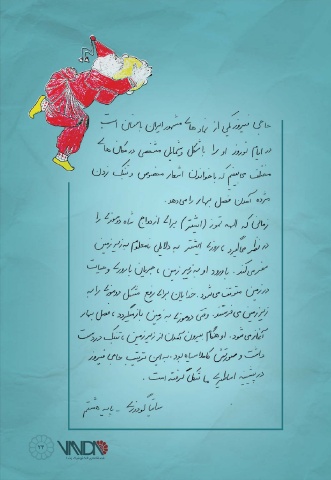 حاجی فیروز یکی از نمادهای مشهور ایران باستان است
در ایام نوروز او را با شکل و شمایل مشخصی در مکان های
مختلف می‌بینیم که با خواندن اشعار مخصوص و تنبک زدن
مژده آمدن فصل بهار را می‌دهد.
زمان که الهه تموز (ایشتر) برای ازدواج شاه دوموزی را
در نظر می‌گیرد، روزی ایشتر به دلایلی نامعلوم به زیر زمین
سفر می‌کند. با ورود او به زیر زمین، جریان باروری و حیات
در زمین متوقف می‌شود. خدایان برای رفع مشکل دوموزی را به
زیر زمین می‌فرستند. وقتی دوموزی به زمین بازمیگردد، فصل بهار
آغاز می‌شود. او هنگام بیرون آمدن از زیر زمین، تنبک در دست
داشت و صورتش کاملا سیاه بود. به این ترتیب حاجی فیروز
در پیشینه اساطیری ما شکل گرفته است.
گودرزی - پایه هشتم